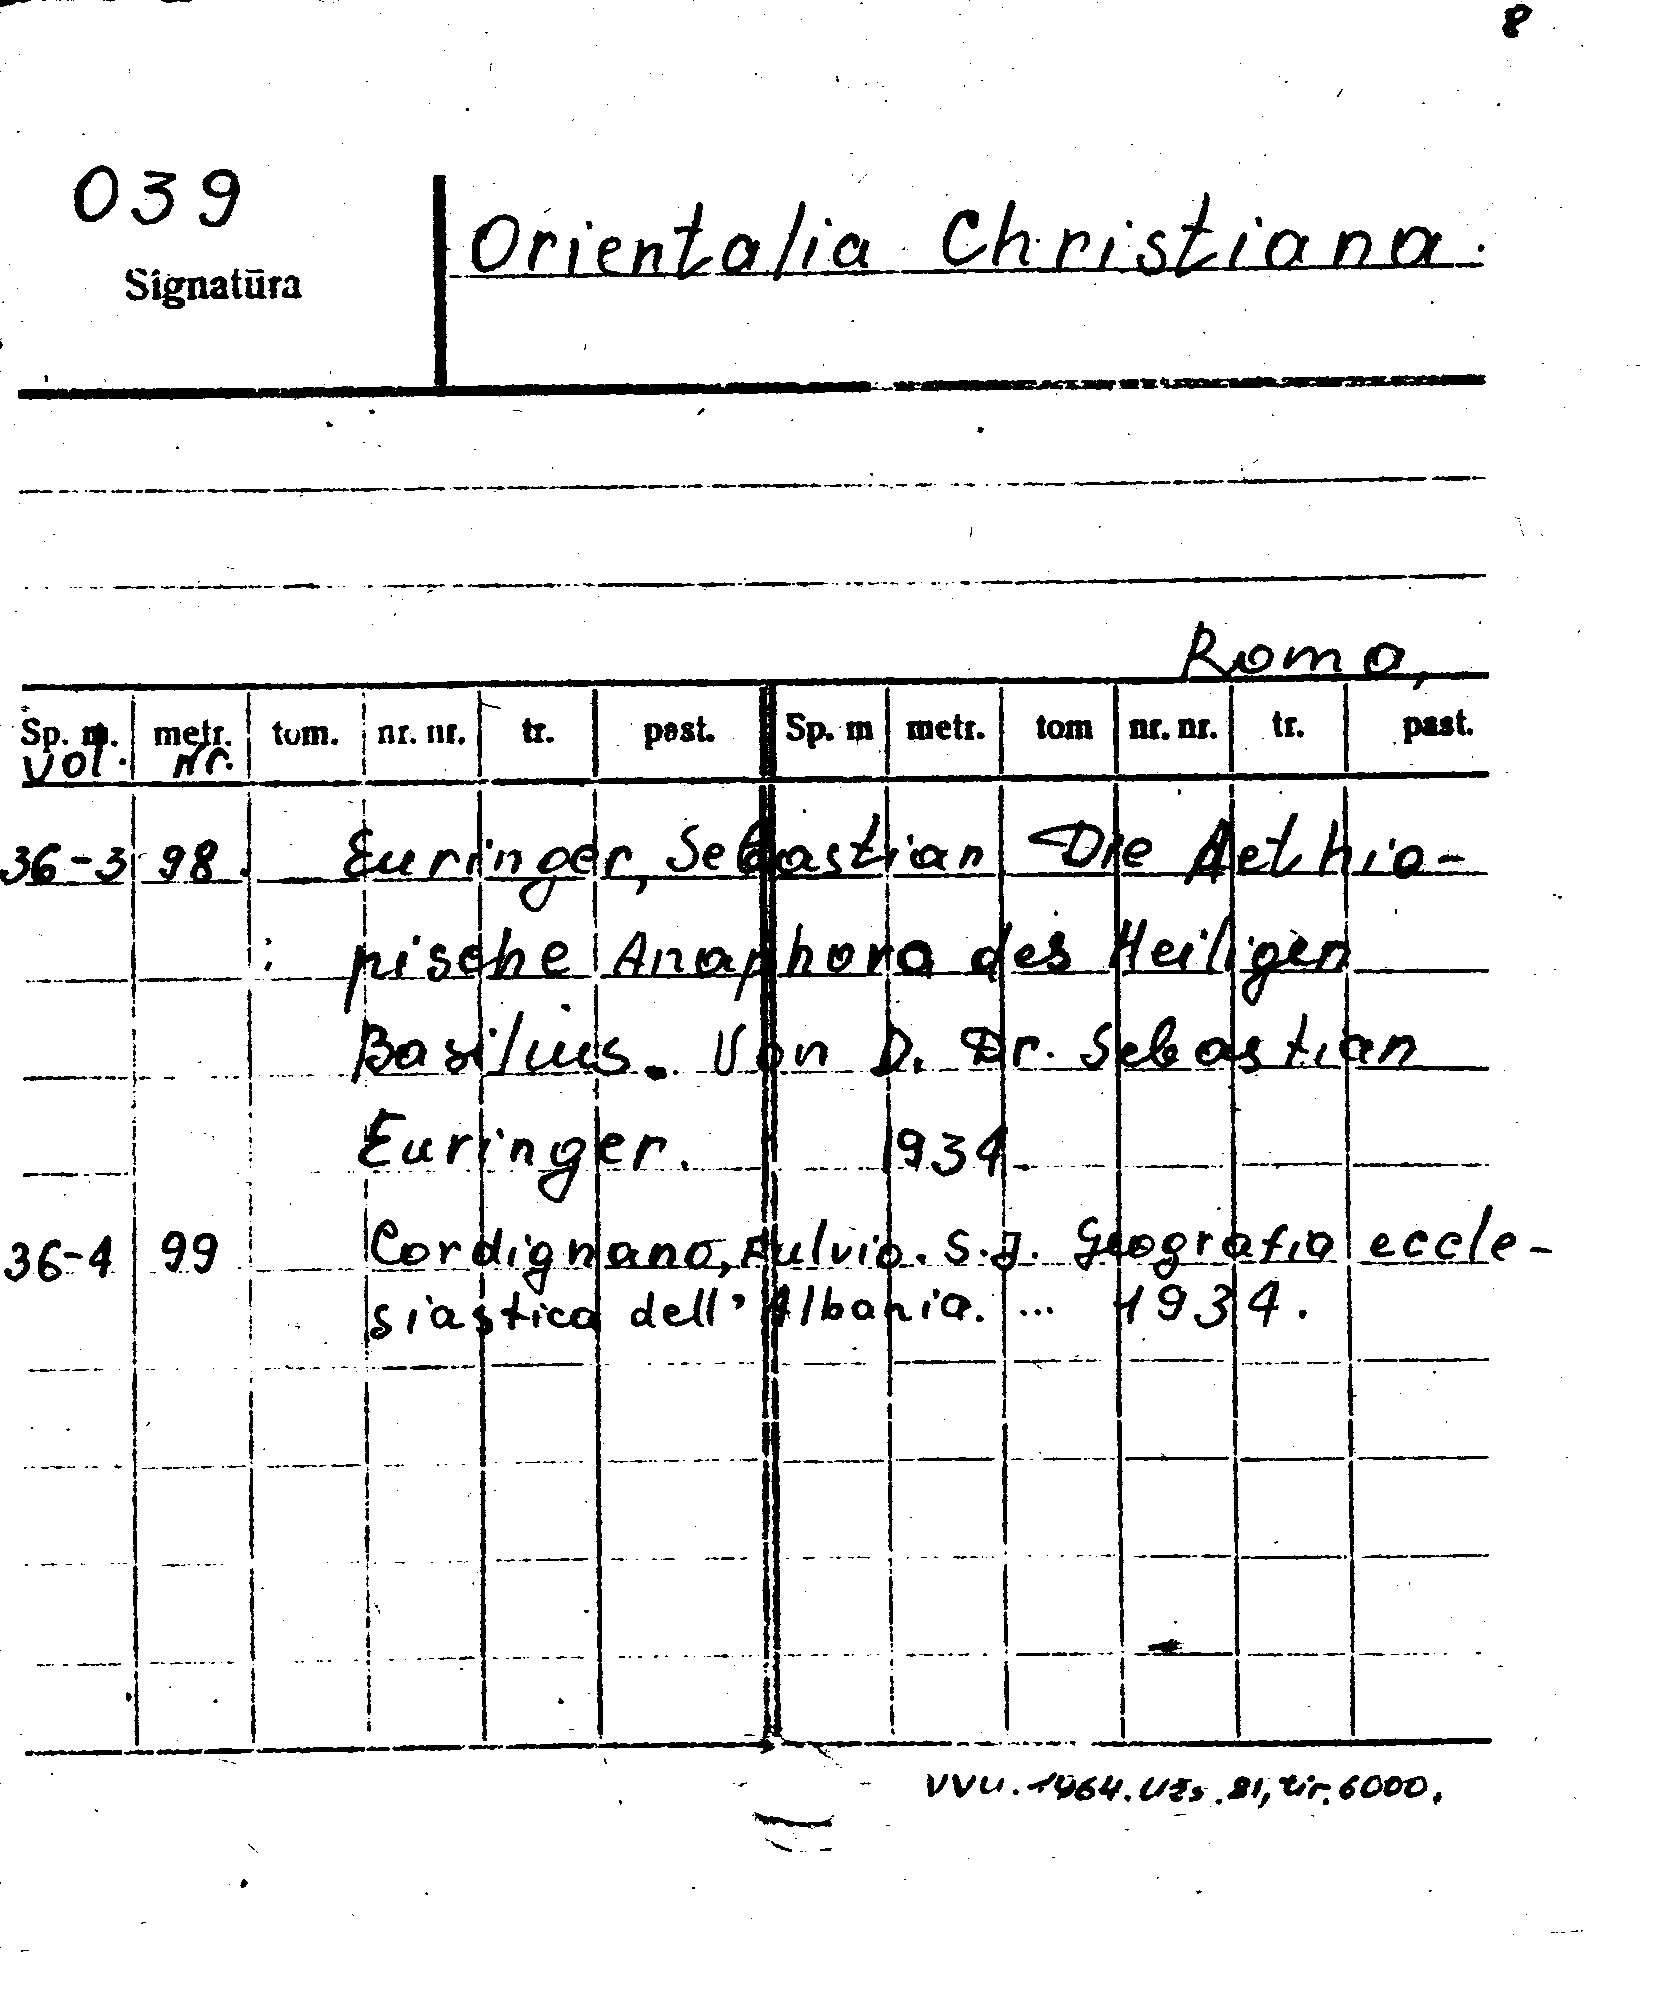 8
039
Signatūra
Orientalia Christiana.
Roma,
Sp. m. metr. tom. nr. nr. tr. past. Sp. m metr. tom nr. nr. tr. past.
vol. nr.
36-3 98. Euringer, Sebastian Die Aethio-
pische Anaphora des Heiligen
Basilius. Von D. Dr. Sebastian
Euringer. 1934
36-4 99 Cordignano, Fulvio. S.J. Geografia eccle-
siastica dell' Albania. ... 1934.
VVU. 1964. Užs. 81, tir. 6000.